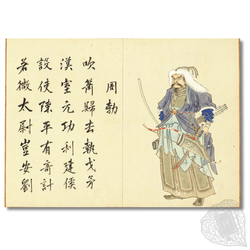 周勃
吹簫歸去執戈矛
漢室元功利建侯
設使陳平有奇計
若微太尉豈安劉